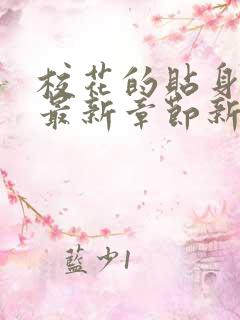 校花的貼身
最新章節新
藍少1